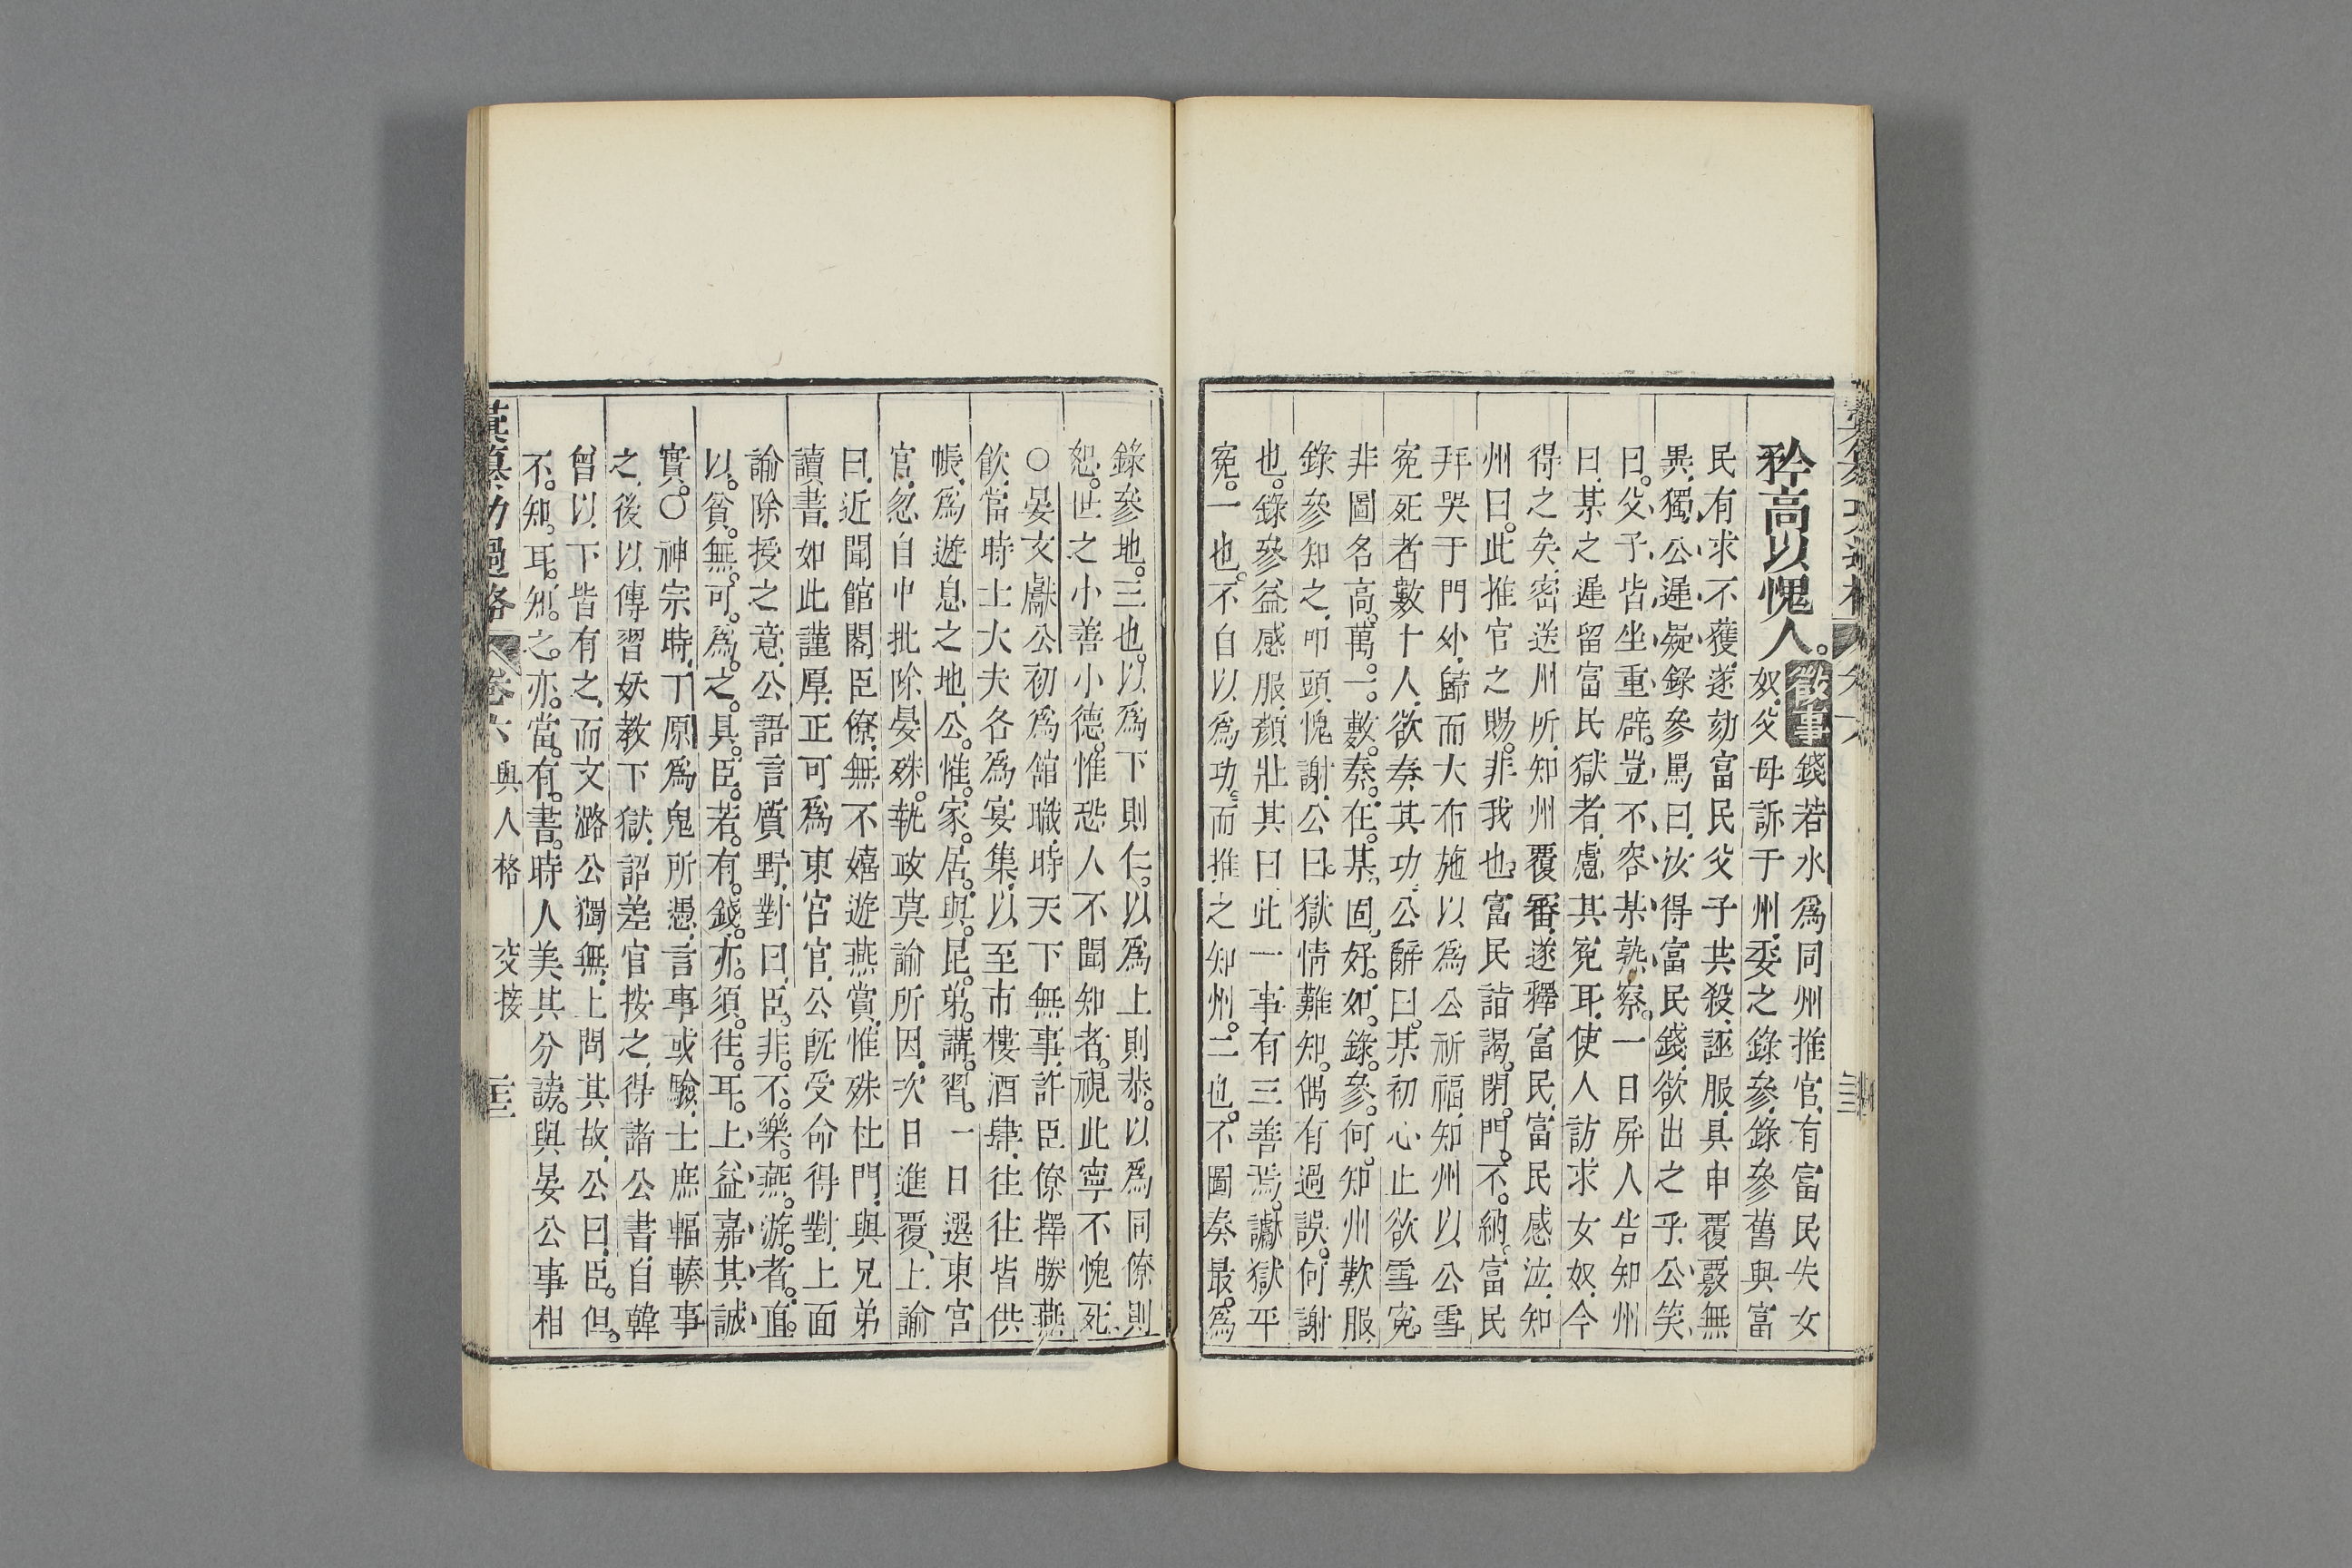 矜高以愧人。徵事錢若水爲同州推官有富民失女
奴父母訴于州委之錄參錄參舊與富
民有求不獲遂劾富民父子共殺誣服具申覆覈無
異獨公遲疑錄參罵曰汝得富民錢欲出之乎公笑
曰。父子皆坐重辟豈不容某熟察。一日屏人告知州
曰某之遲留富民獄者慮其寃耳使人訪求女奴今
得之矣密送州所知州覆審遂釋富民富民感泣知
州曰。此推官之賜。非我也富民詣謁。閉。門。不。納。富民
拜哭于門外歸而大布施以爲公祈福知州以公雪
寃死者數十人欲奏其功公辭曰。某初心止欲雪寃。
非圖名高。萬。一。數。奏。在。某。固。好。如。錄。參。何。知州歎服
錄參知之叩頭愧謝公曰獄情難知。偶有過誤。何謝
也。錄參益感服顏壯其曰此一事有三善焉。讞獄平
寃。一也。不自以爲功而推之知州。二也。不圖奏最。爲
錄參地。三也。以爲下則仁。以爲上則恭。以爲同僚則
恕。世之小善小德。惟恐人不聞知者。視此寧不愧死
○晏文獻公初爲館職時天下無事許臣僚擇勝燕
飲當時士大夫各爲宴集以至市樓酒肆往往皆供
帳爲遊息之地公。惟。家。居。與。昆。弟。講。習。一日選東宮
官忽自中批除晏殊。執政莫諭所因次日進覆上諭
曰近聞館閣臣僚無不嬉遊燕賞惟殊杜門與兄弟
讀書如此謹厚正可爲東宮官公旣受命得對上面
諭除授之意公語言質野對曰臣。非。不。樂。燕。游。者。直。
以。貧。無。可。爲。之。具。臣。若。有。錢。亦。須。往。耳。上益嘉其誠
實。○神宗時丁原爲鬼所憑言事或驗士庶輻輳事
之後以傳習妖教下獄詔差官按之得諸公書自韓
曾以下皆有之而文潞公獨無上問其故公曰臣。但。
不。知。耳。知。之。亦。當。有。書。時人美其分謗。與晏公事相
彙纂功過格 卷六 與人格 交接 三三